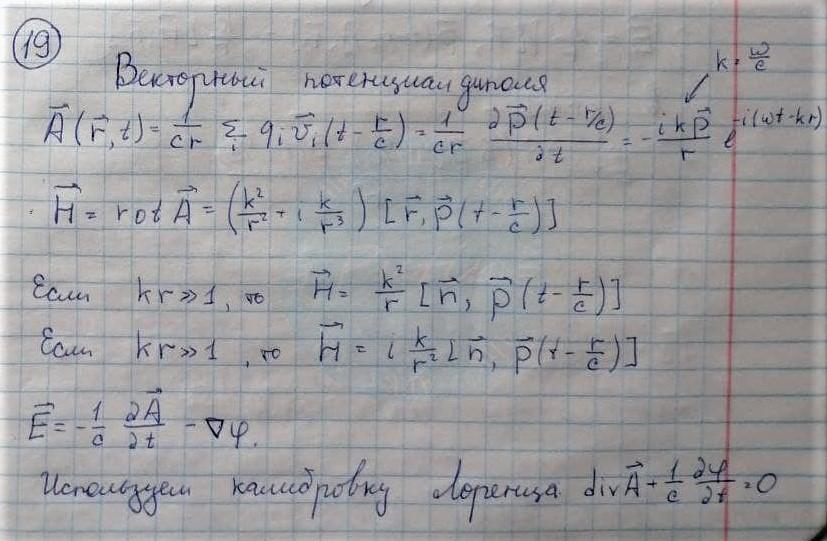 19
Векторный потенциал диполя
k = ω/c
A⃗(r⃗,t) = 1/(cr) Σ_i q_i v⃗_i (t - r/c) = 1/(cr) ∂p⃗(t - r/c)/∂t = - ikp⃗/r e^{-i(ωt-kr)}
H⃗ = rot A⃗ = (k²/r² + i k/r³) [r⃗, p⃗(t - r/c)]
Если kr ≫ 1, то H⃗ = k²/r [n⃗, p⃗(t - r/c)]
Если kr ≫ 1, то H⃗ = i k/r² [n⃗, p⃗(t - r/c)]
E⃗ = - 1/c ∂A⃗/∂t - ∇φ.
Используем калибровку Лоренца div A⃗ + 1/c ∂φ/∂t = 0